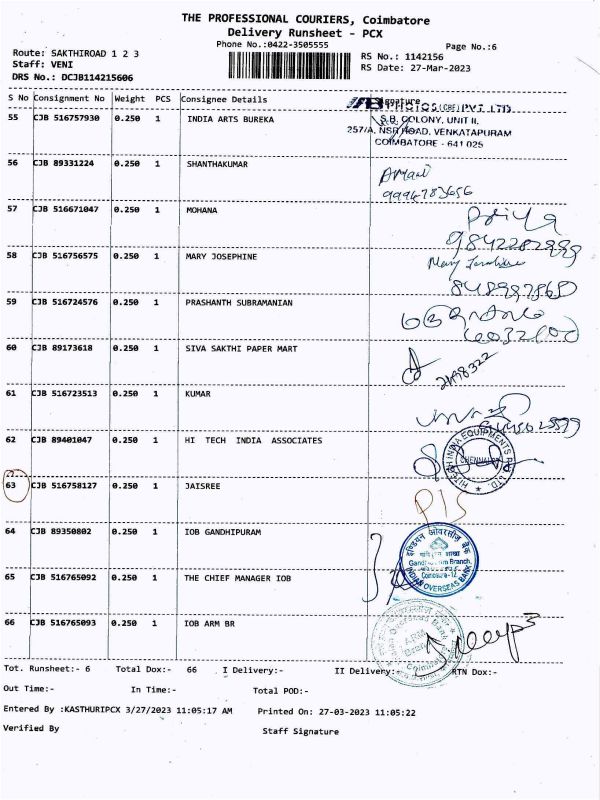 THE PROFESSIONAL COURIERS, Coimbatore
Delivery Runsheet - PCX
Phone No.:0422-3505555
Page No.:6
Route: SAKTHIROAD 1 2 3
Staff: VENI
DRS No.: DCJB114215606
RS No.: 1142156
RS Date: 27-Mar-2023
S No Consignment No Weight PCS Consignee Details Signature
55 CJB 516757930 0.250 1 INDIA ARTS BUREKA
PHOTOS (CBE) PVT. LTD.
S.B. COLONY, UNIT II,
257/A, NSR ROAD, VENKATAPURAM
COIMBATORE - 641 025
56 CJB 89331224 0.250 1 SHANTHAKUMAR
57 CJB 516671047 0.250 1 MOHANA
Priya
58 CJB 516756575 0.250 1 MARY JOSEPHINE
59 CJB 516724576 0.250 1 PRASHANTH SUBRAMANIAN
60 CJB 89173618 0.250 1 SIVA SAKTHI PAPER MART
61 CJB 516723513 0.250 1 KUMAR
62 CJB 89401047 0.250 1 HI TECH INDIA ASSOCIATES
63 CJB 516758127 0.250 1 JAISREE
64 CJB 89350802 0.250 1 IOB GANDHIPURAM
इण्डियन ओवरसीज़ बैंक
INDIAN OVERSEAS BANK
65 CJB 516765092 0.250 1 THE CHIEF MANAGER IOB
66 CJB 516765093 0.250 1 IOB ARM BR
Tot. Runsheet:- 6 Total Dox:- 66 I Delivery:- II Delivery:- RTN Dox:-
Out Time:- In Time:- Total POD:-
Entered By :KASTHURIPCX 3/27/2023 11:05:17 AM Printed On: 27-03-2023 11:05:22
Verified By Staff Signature